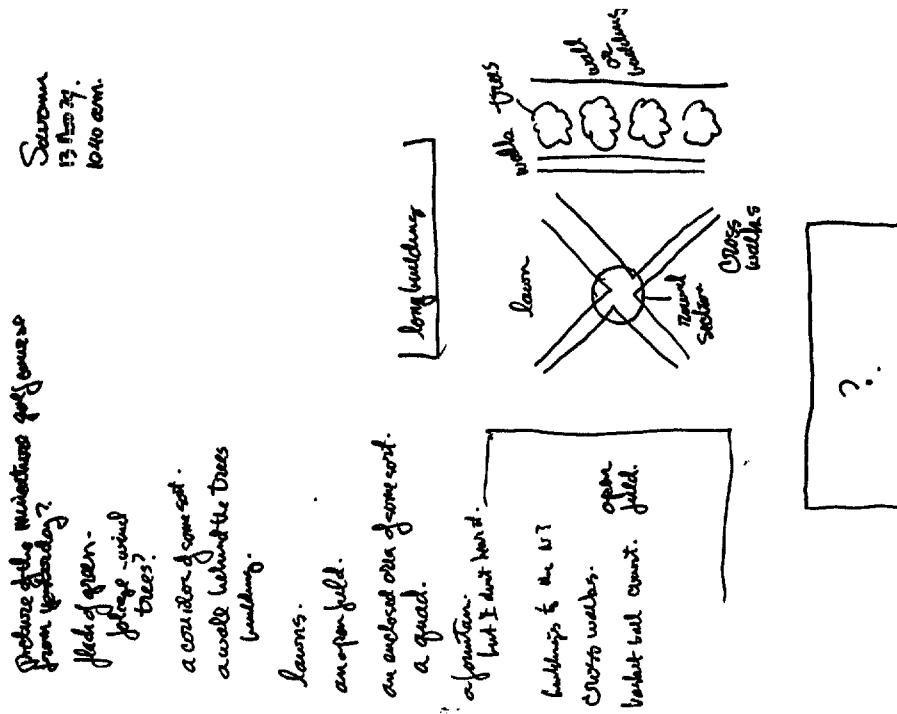 13
10:40 am.
picture of the miniature golf course
from yesterday?
flash of green-
foliage-wind
trees?
a corridor of some sort.
a wall behind the trees
building.
lawns.
an open field.
an enclosed area of some sort.
a quad.
a fountain.
but I don't hear it.
buildings to the N?
cross walks.
basket ball court.
open
field.
long building
lawn
round
section
cross
walks
walk
trees
wall
or
building
?.